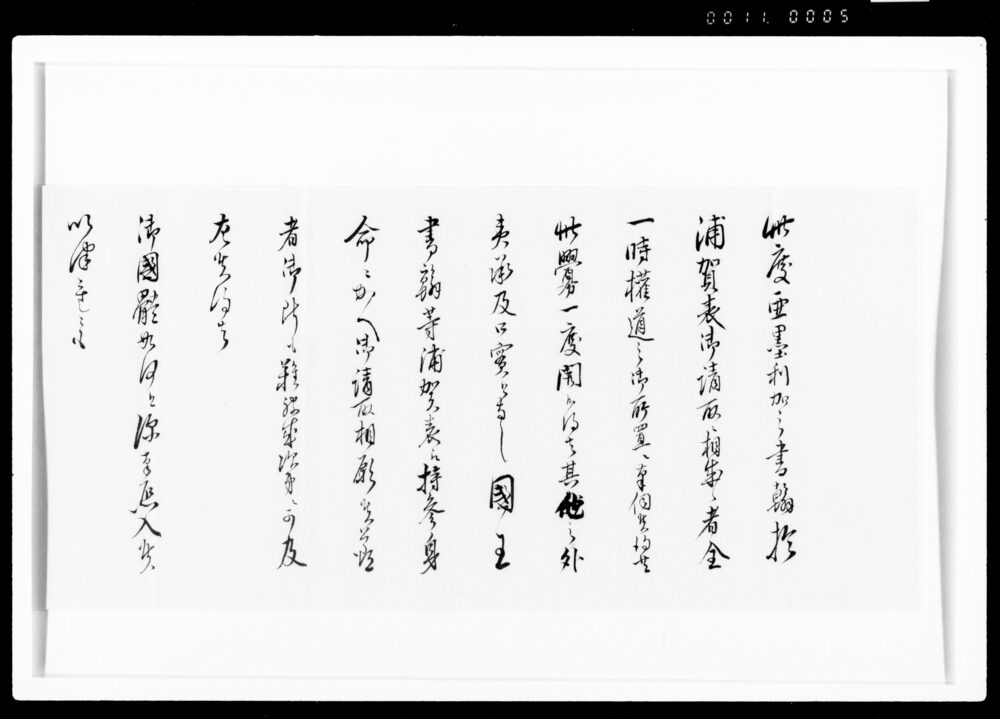 0011.0005
此度亜墨利加之書翰於
浦賀表御請取ニ相成候者全
一時権道之御所置ニ奉伺候得共
此釁一度開候得者其他之外
夷承及口実ニ致し国王
書翰等浦賀表江持参身
命ニかへ御請取相願候節
者御断も難相成次第ニ可及
左候得者
御国体如何と深奉恐入候